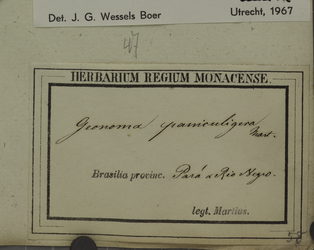 Det. J. G. Wessels Boer
Utrecht, 1967
47
HERBARIUM REGIUM MONACENSE.
Geonoma paniculigera
Mart.
Brasilia provinc. Pará a Rio Negro.
legt. Martius.
58